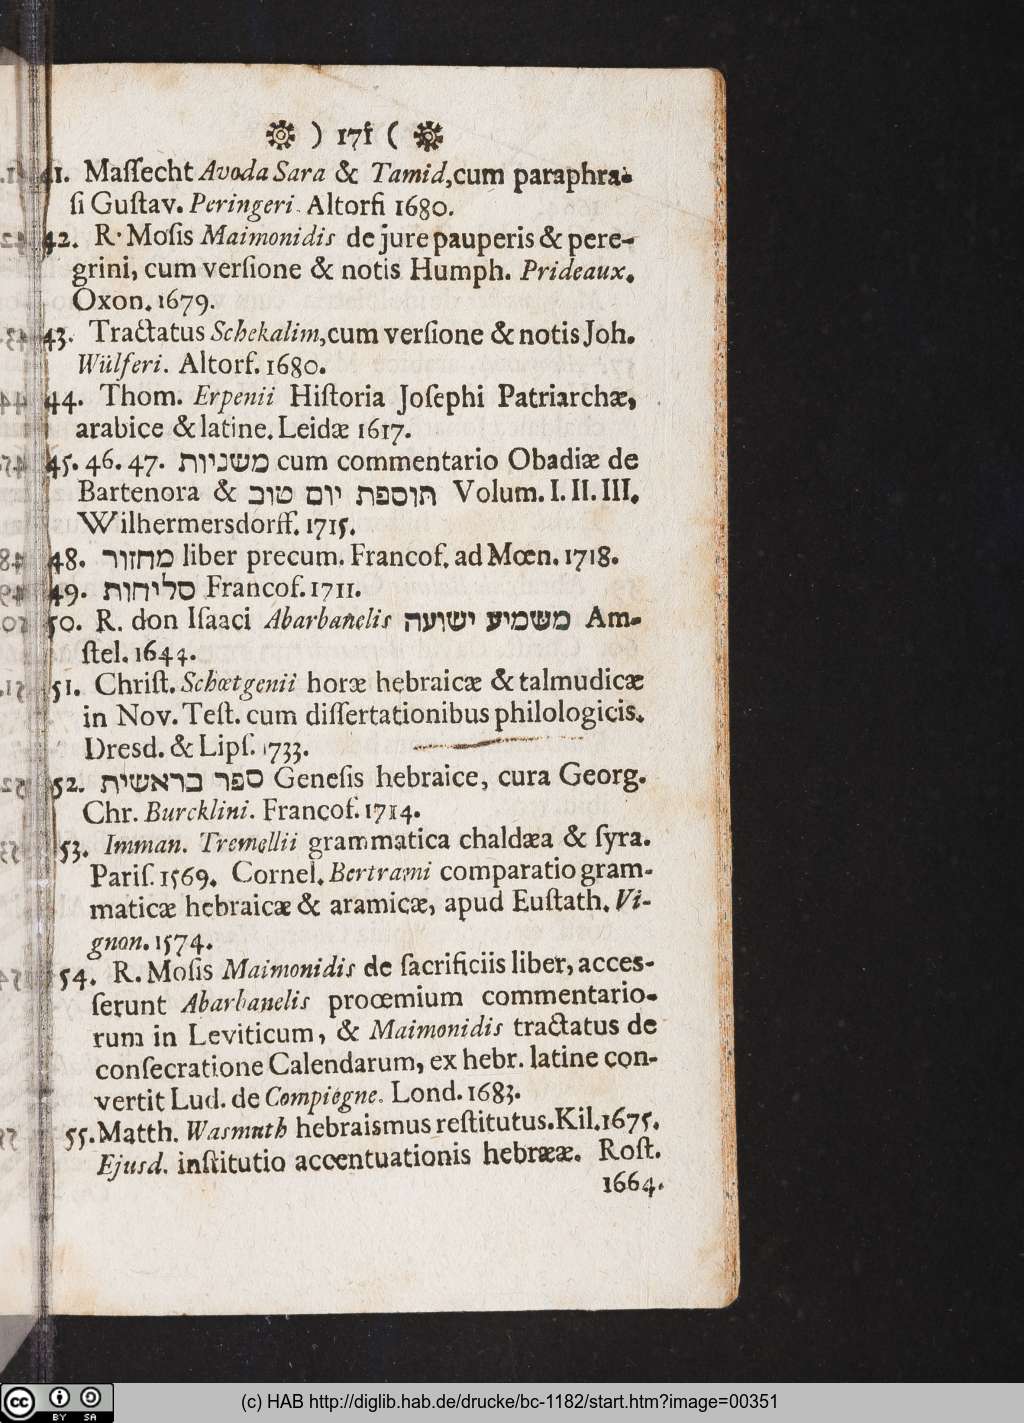 ) 171 (
41. Maſſecht Avoda Sara & Tamid, cum paraphra-
ſi Guſtav. Peringeri. Altorfi 1680.
42. R. Moſis Maimonidis de jure pauperis & pere-
grini, cum verſione & notis Humph. Prideaux.
Oxon. 1679.
43. Tractatus Schekalim, cum verſione & notis Joh.
Wülferi. Altorf. 1680.
44. Thom. Erpenii Hiſtoria Joſephi Patriarchæ,
arabice & latine. Leidæ 1617.
45. 46. 47. משניות cum commentario Obadiæ de
Bartenora & תוספת יום טוב Volum. I. II. III.
Wilhermersdorff. 1715.
48. מחזור liber precum. Francof. ad Mœn. 1718.
49. סליחות Francof. 1711.
50. R. don Iſaaci Abarbanelis משמיע ישועה Am-
ſtel. 1644.
51. Chriſt. Schœtgenii horæ hebraicæ & talmudicæ
in Nov. Teſt. cum diſſertationibus philologicis.
Dresd. & Lipſ. 1733.
52. ספר בראשית Geneſis hebraice, cura Georg.
Chr. Burcklini. Francof. 1714.
53. Imman. Tremellii grammatica chaldæa & ſyra.
Pariſ. 1569. Cornel. Bertrami comparatio gram-
maticæ hebraicæ & aramicæ, apud Euſtath. Vi-
gnon. 1574.
54. R. Moſis Maimonidis de ſacrificiis liber, acces-
ſerunt Abarbanelis proœmium commentario-
rum in Leviticum, & Maimonidis tractatus de
conſecratione Calendarum, ex hebr. latine con-
vertit Lud. de Compiegne. Lond. 1683.
55. Matth. Wasmuth hebraismus reſtitutus. Kil. 1675.
Ejusd. inſtitutio accentuationis hebrææ. Roſt.
1664.
(c) HAB http://diglib.hab.de/drucke/bc-1182/start.htm?image=00351
cc BY SA